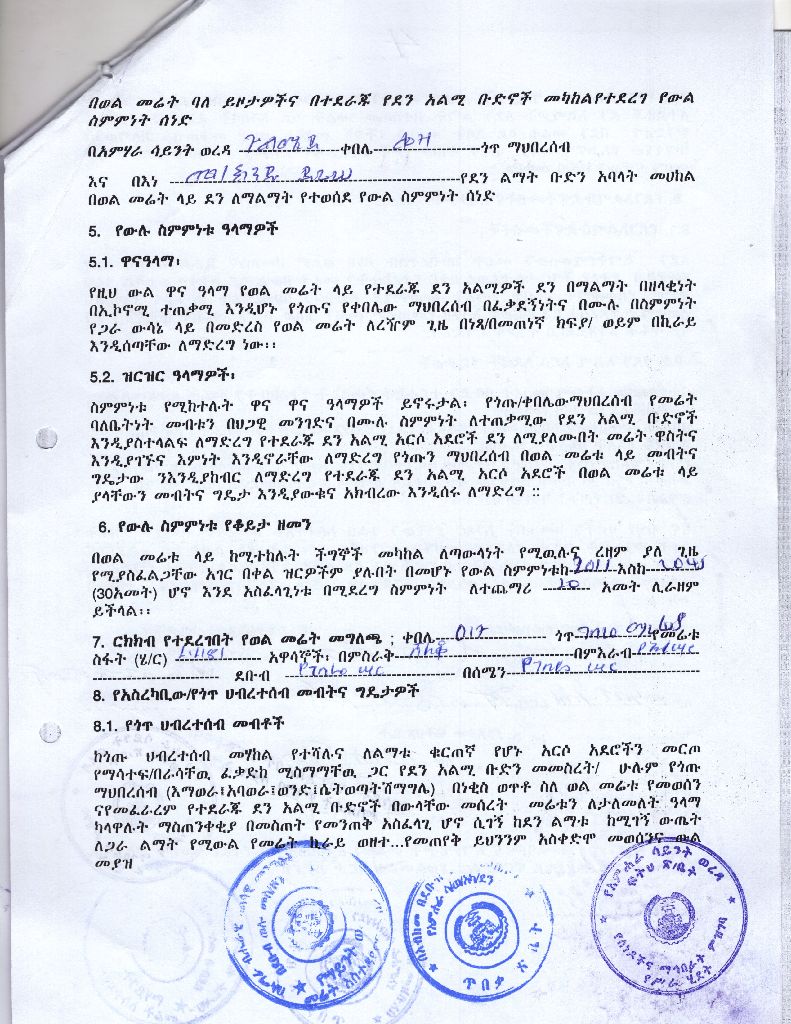 በወል መሬት ባለ ይዞታዎችና በተደራጁ የደን አልሚ ቡድኖች መካከልየተደረገ የውል
ስምምነት ሰነድ
በአምሃራ ሳይንት ወረዳ ቀበሌ ጎጥ ማህበረሰብ
እና በእነ የደን ልማት ቡድን አባላት መሀከል
በወል መሬት ላይ ደን ለማልማት የተወሰደ የውል ስምምነት ሰነድ
5. የውሉ ስምምነቱ ዓላማዎች
5.1. ዋናዓላማ፡
የዚህ ውል ዋና ዓላማ የወል መሬት ላይ የተደራጁ ደን አልሚዎች ደን በማልማት በዘላቂነት
በኢኮኖሚ ተጠቃሚ እንዲሆኑ የጎጡና የቀበሌው ማህበረሰብ በፈቃደኝነትና በሙሉ በስምምነት
የጋራ ውሳኔ ላይ በመድረስ የወል መሬት ለረዥም ጊዜ በነጻ/በመጠነኛ ክፍያ/ ወይም በኪራይ
እንዲሰጣቸው ለማድረግ ነው፡፡
5.2. ዝርዝር ዓላማዎች፡
ስምምነቱ የሚከተሉት ዋና ዋና ዓላማዎች ይኖሩታል፡ የጎጡ/ቀበሌውማህበረሰብ የመሬት
ባለቤትነት መብቱን በህጋዊ መንገድና በሙሉ ስምምነት ለተጠቃሚው የደን አልሚ ቡድኖች
እንዲያስተላልፍ ለማድረግ የተደራጁ ደን አልሚ አርሶ አደሮች ደን ለሚያለሙበት መሬት ዋስትና
እንዲያገኙና እምነት እንዲኖራቸው ለማድረግ የጎጡን ማህበረሰብ በወል መሬቱ ላይ መብትና
ግዴታው ንእንዲያከብር ለማድረግ የተደራጁ ደን አልሚ አርሶ አደሮች በወል መሬቱ ላይ
ያላቸውን መብትና ግዴታ እንዲያውቁና አክብረው እንዲሰሩ ለማድረግ ::
6. የውሉ ስምምነቱ የቆይታ ዘመን
በወል መሬቱ ላይ ከሚተከሉት ችግኞች መካከል ለጣውላነት የሚዉሉና ረዘም ያለ ጊዜ
የሚያስፈልጋቸው አገር በቀል ዝርዎችም ያሉበት በመሆኑ የውል ስምምነቱከ 2011 እስከ 2041
(30አመት) ሆኖ እንደ አስፈላጊነቱ በሚደረግ ስምምነት ለተጨማሪ 20 አመት ሊራዘም
ይችላል፡፡
7. ርክክብ የተደረገበት የወል መሬት መግለጫ ; ቀበሌ 012 ጎጥ የመሬቱ
ስፋት (ሄ/ር) አዋሳኞች፡ በምስራቅ በምእራብ
ደቡብ በሰሜን
8. የአስረካቢው/የጎጥ ህብረተሰብ መብትና ግዴታዎች
8.1. የጎጥ ህብረተሰብ መብቶች
ከጎጡ ህብረተሰብ መሃከል የተሻሉና ለልማቱ ቁርጠኛ የሆኑ አርሶ አደሮችን መርጦ
የማሳተፍ/በራሳቸዉ ፈቃድከ ሚስማማቸዉ ጋር የደን አልሚ ቡድን መመስረት/ ሁሉም የጎጡ
ማህበረሰብ (እማወራ፣አባወራ፣ወንድ፣ሴትወጣትሽማግሌ) በነቂስ ወጥቶ ስለ ወል መሬቱ የመወሰን
ናየመፈራረም የተደራጁ ደን አልሚ ቡድኖች በውላቸው መሰረት መሬቱን ለታለመለት ዓላማ
ካላዋሉት ማስጠንቀቂያ በመስጠት የመንጠቅ አስፈላጊ ሆኖ ሲገኝ ከደን ልማቱ ከሚገኝ ውጤት
ለጋራ ልማት የሚውል የመሬት ኪራይ ወዘተ...የመጠየቅ ይህንንም አስቀድሞ መወሰንና ውል
መያዝ
የአምሐራ ሳይንት ወረዳ
ፍትህ ጽ/ቤት
ጥበቃ ጽ ቤት